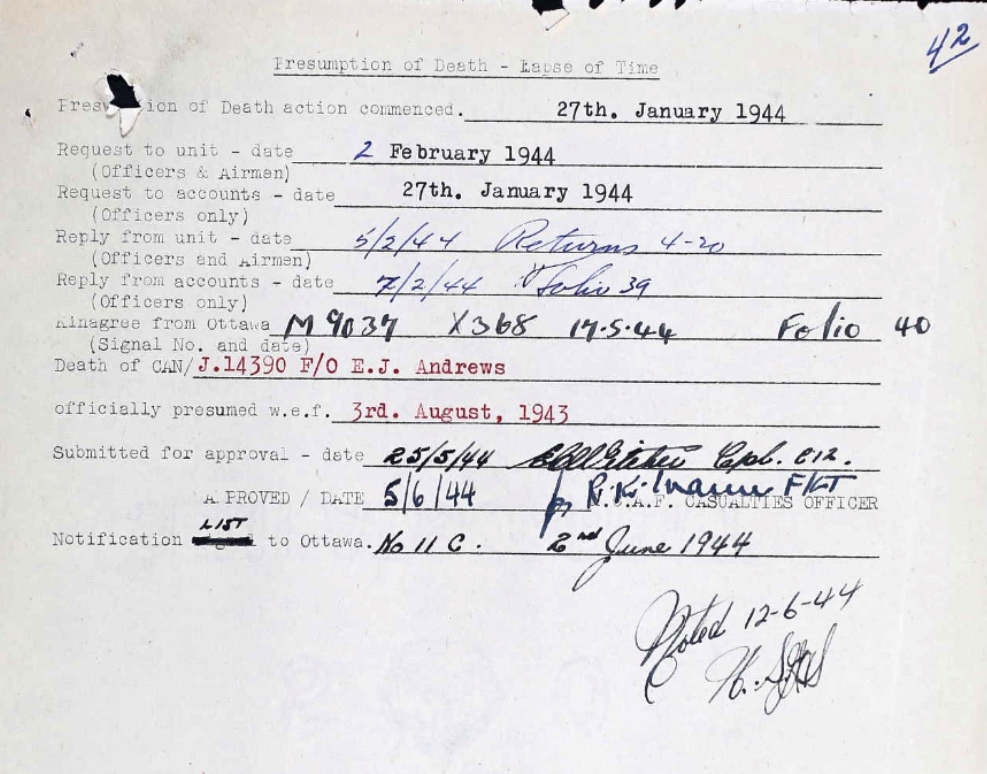 42
Presumption of Death - Lapse of Time
Pres ion of Death action commenced. 27th. January 1944
Request to unit - date 2 February 1944
(Officers & Airmen)
Request to accounts - date 27th. January 1944
(Officers only)
Reply from unit - date 5/2/44 Returns 4-20
(Officers and Airmen)
Reply from accounts - date 7/2/44 Folio 39
(Officers only)
Kinagree from Ottawa M9037 X368 17-5-44 Folio 40
(Signal No. and date)
Death of CAN/J.14390 F/O E.J. Andrews
officially presumed w.e.f. 3rd. August, 1943
Submitted for approval - date 25/5/44 Cpl. C12.
A PROVED / DATE 5/6/44 for F/LT
R.C.A.F. CASUALTIES OFFICER
LIST
Notification to Ottawa. No 11 C. 2nd June 1944
Noted 12-6-44